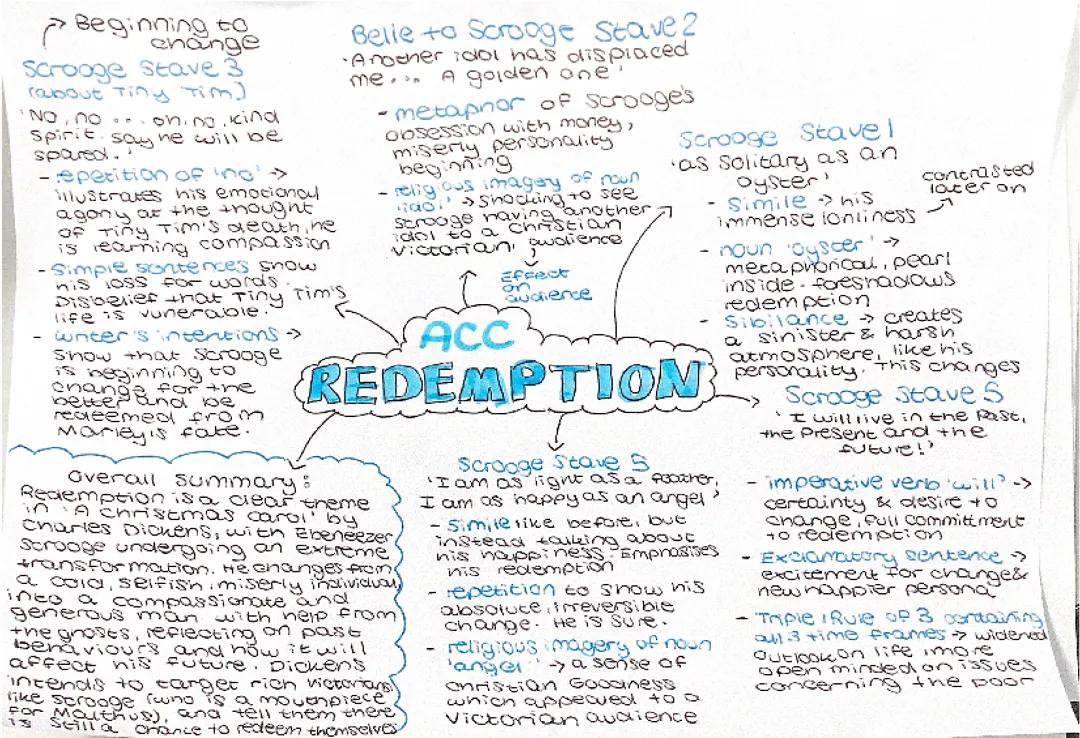 Beginning to
change
Scrooge Stave 3
(about Tiny Tim)
'No, no ... oh, no, kind
spirit. say he will be
spared.'
- repetition of 'no' →
illustrates his emotional
agony at the thought
of Tiny Tim's death, he
is learning compassion
- Simple sentences show
his loss for words.
Disbelief that Tiny Tim's
life is vunerable.
- writer's intentions →
show that Scrooge
is beginning to
change for the
better and be
redeemed from
Marley's fate.
Belle to Scrooge Stave 2
'Another idol has displaced
me... A golden one'
- metaphor of Scrooge's
obsession with money,
miserly personality
beginning
- religious imagery of noun
'idol' → shocking to see
Scrooge having another
idol to a Christian
Victorian audience
Effect
on
audience
Scrooge Stave 1
'as solitary as an
oyster'
- Simile → his
immense lonliness
contrasted
later on
- noun 'oyster' →
metaphorical, pearl
inside - foreshadows
redemption
- Sibilance → creates
a sinister & harsh
atmosphere, like his
personality. This changes
ACC
REDEMPTION
Scrooge Stave 5
'I will live in the Past,
the Present and the
future!'
- imperative verb 'will' →
certainty & desire to
change, full commitment
to redemption
- Exclamatory sentence →
excitement for change &
new happier persona
- Triple / Rule of 3 containing
all 3 time frames → widened
outlook on life, more
open minded on issues
concerning the poor
Scrooge Stave 5
'I am as light as a feather,
I am as happy as an angel'
- Simile like before, but
instead talking about
his happiness. Emphasises
his redemption
- repetition to show his
absolute, irreversible
change. He is sure.
- religious imagery of noun
'angel' → a sense of
Christian Goodness
which appealed to a
Victorian audience
Overall summary:
Redemption is a clear theme
in 'A Christmas Carol' by
Charles Dickens, with Ebeneezer
Scrooge undergoing an extreme
transformation. He changes from
a cold, selfish, miserly individual
into a compassionate and
generous man with help from
the ghosts, reflecting on past
behaviours and how it will
affect his future. Dickens
intends to target rich Victorians
like Scrooge (who is a mouthpiece
for Malthus), and tell them there
is still a chance to redeem themselves